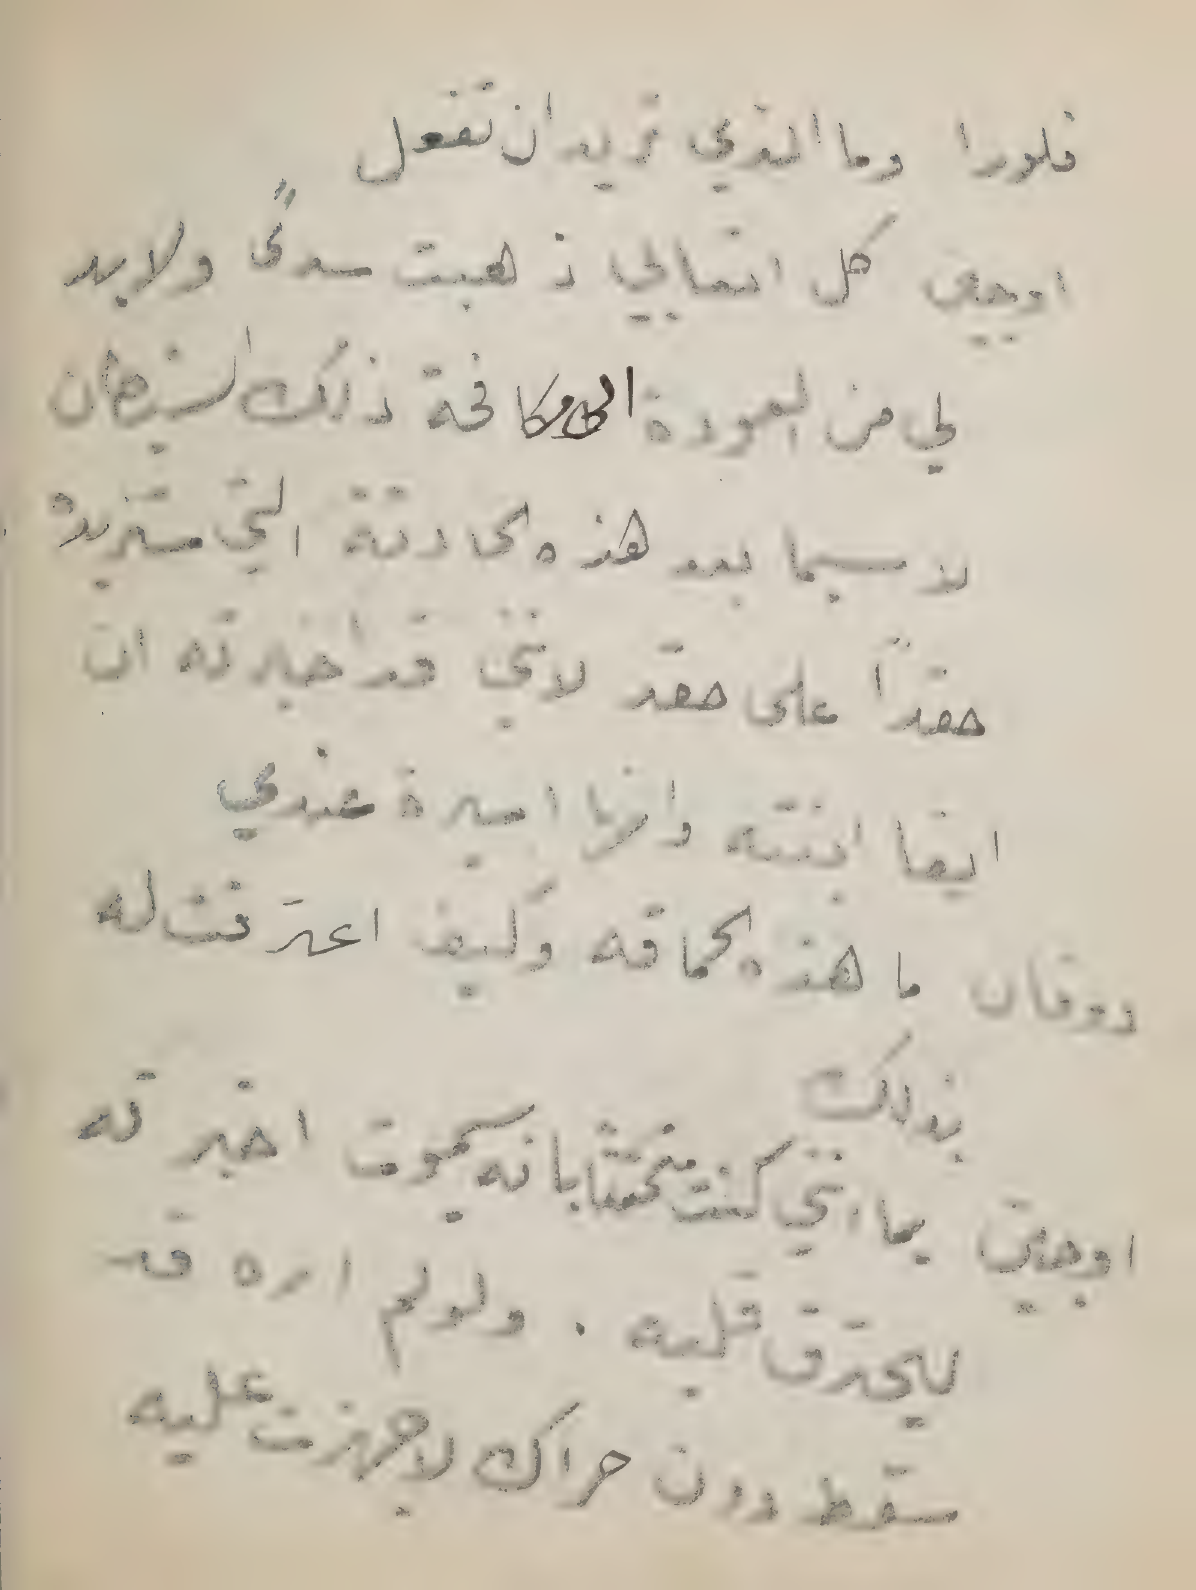 فلورا وما الذي تريد ان تفعل
اوجين كل اتعابي ذهبت سدىً ولا بد
لي من العودة الى مكافحة ذلك الشيطان
لا سيما بعد هذه الحادثة التي ستزيده
حقداً على حقد لانني قد اخبرته ان
ايفا ابنته وانها اسيرة عندي
دوفان ما هذه الحماقه وكيف اعترفت له
بذلك
اوجين بما انني كنت متحققا بانه سيموت اخبرته
ليحترق قلبه . ولو لم اره قد
سقط دون حراك لاجهزت عليه